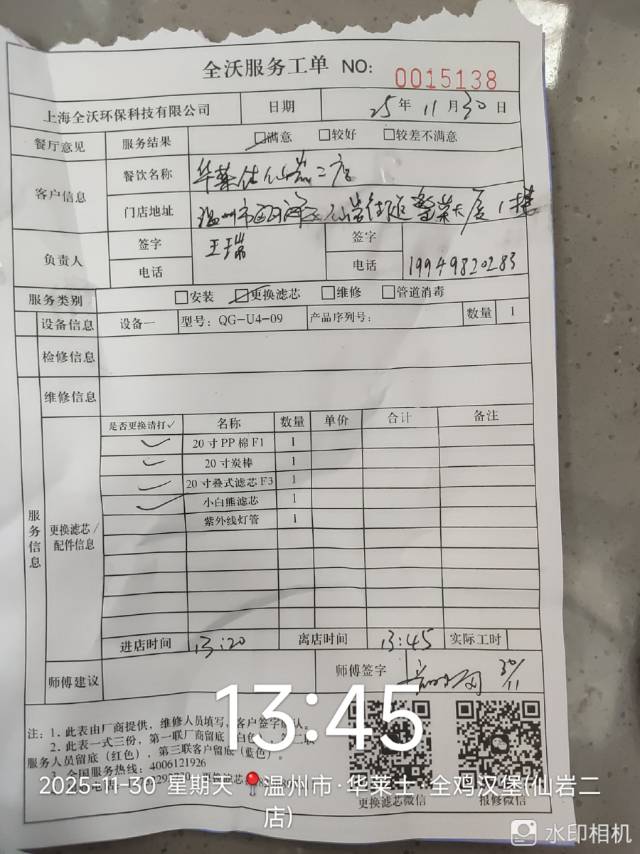 全沃服务工单 NO: 0015138
上海全沃环保科技有限公司 日期 25年11月30日
餐厅意见 服务结果 ☑满意 □较好 □较差不满意
客户信息 餐饮名称 华莱仕仙岩二店
门店地址 温州市瓯海区仙岩街道 大厦1楼
负责人 签字 王瑞 签字
电话 电话 19949820283
服务类别 □安装 ☑更换滤芯 □维修 □管道消毒
设备信息 设备一 型号: QG-U4-09 产品序列号: 数量 1
检修信息
维修信息
服务信息 更换滤芯/配件信息
是否更换请打✓ 名称 数量 单价 合计 备注
✓ 20寸PP棉F1 1
✓ 20寸炭棒 1
✓ 20寸叠式滤芯F3 1
✓ 小白熊滤芯 1
紫外线灯管 1
进店时间 13:20 离店时间 13:45 实际工时
师傅建议 师傅签字 30/11
13:45
注: 1. 此表由厂商提供, 维修人员填写, 客户签字
2. 此表一式三份, 第一联厂商留底
服务人员留底(红色), 第三联客户留底(蓝色)。
3. 全国服务热线: 4006121926
更换滤芯微信 报修微信
2025-11-30 星期天 温州市·华莱士·全鸡汉堡(仙岩二店)
水印相机